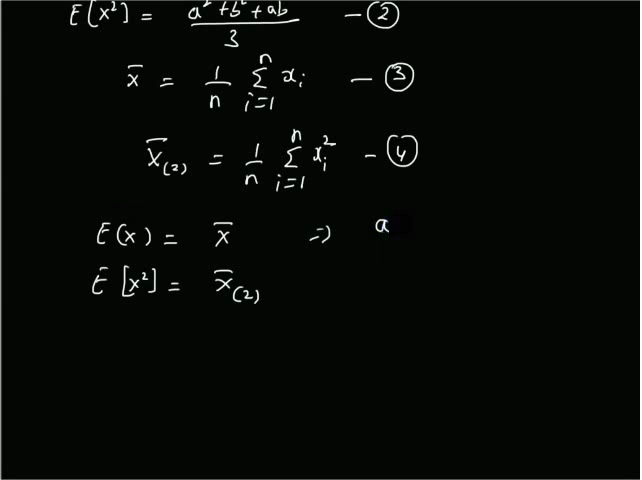 E[x²] = a² + b² + ab / 3 — ②
x̄ = 1/n Σ_{i=1}^{n} x_i — ③
x̄_(2) = 1/n Σ_{i=1}^{n} x_i² — ④
E(x) = x̄ ⇒ a
E[x²] = x̄_(2)